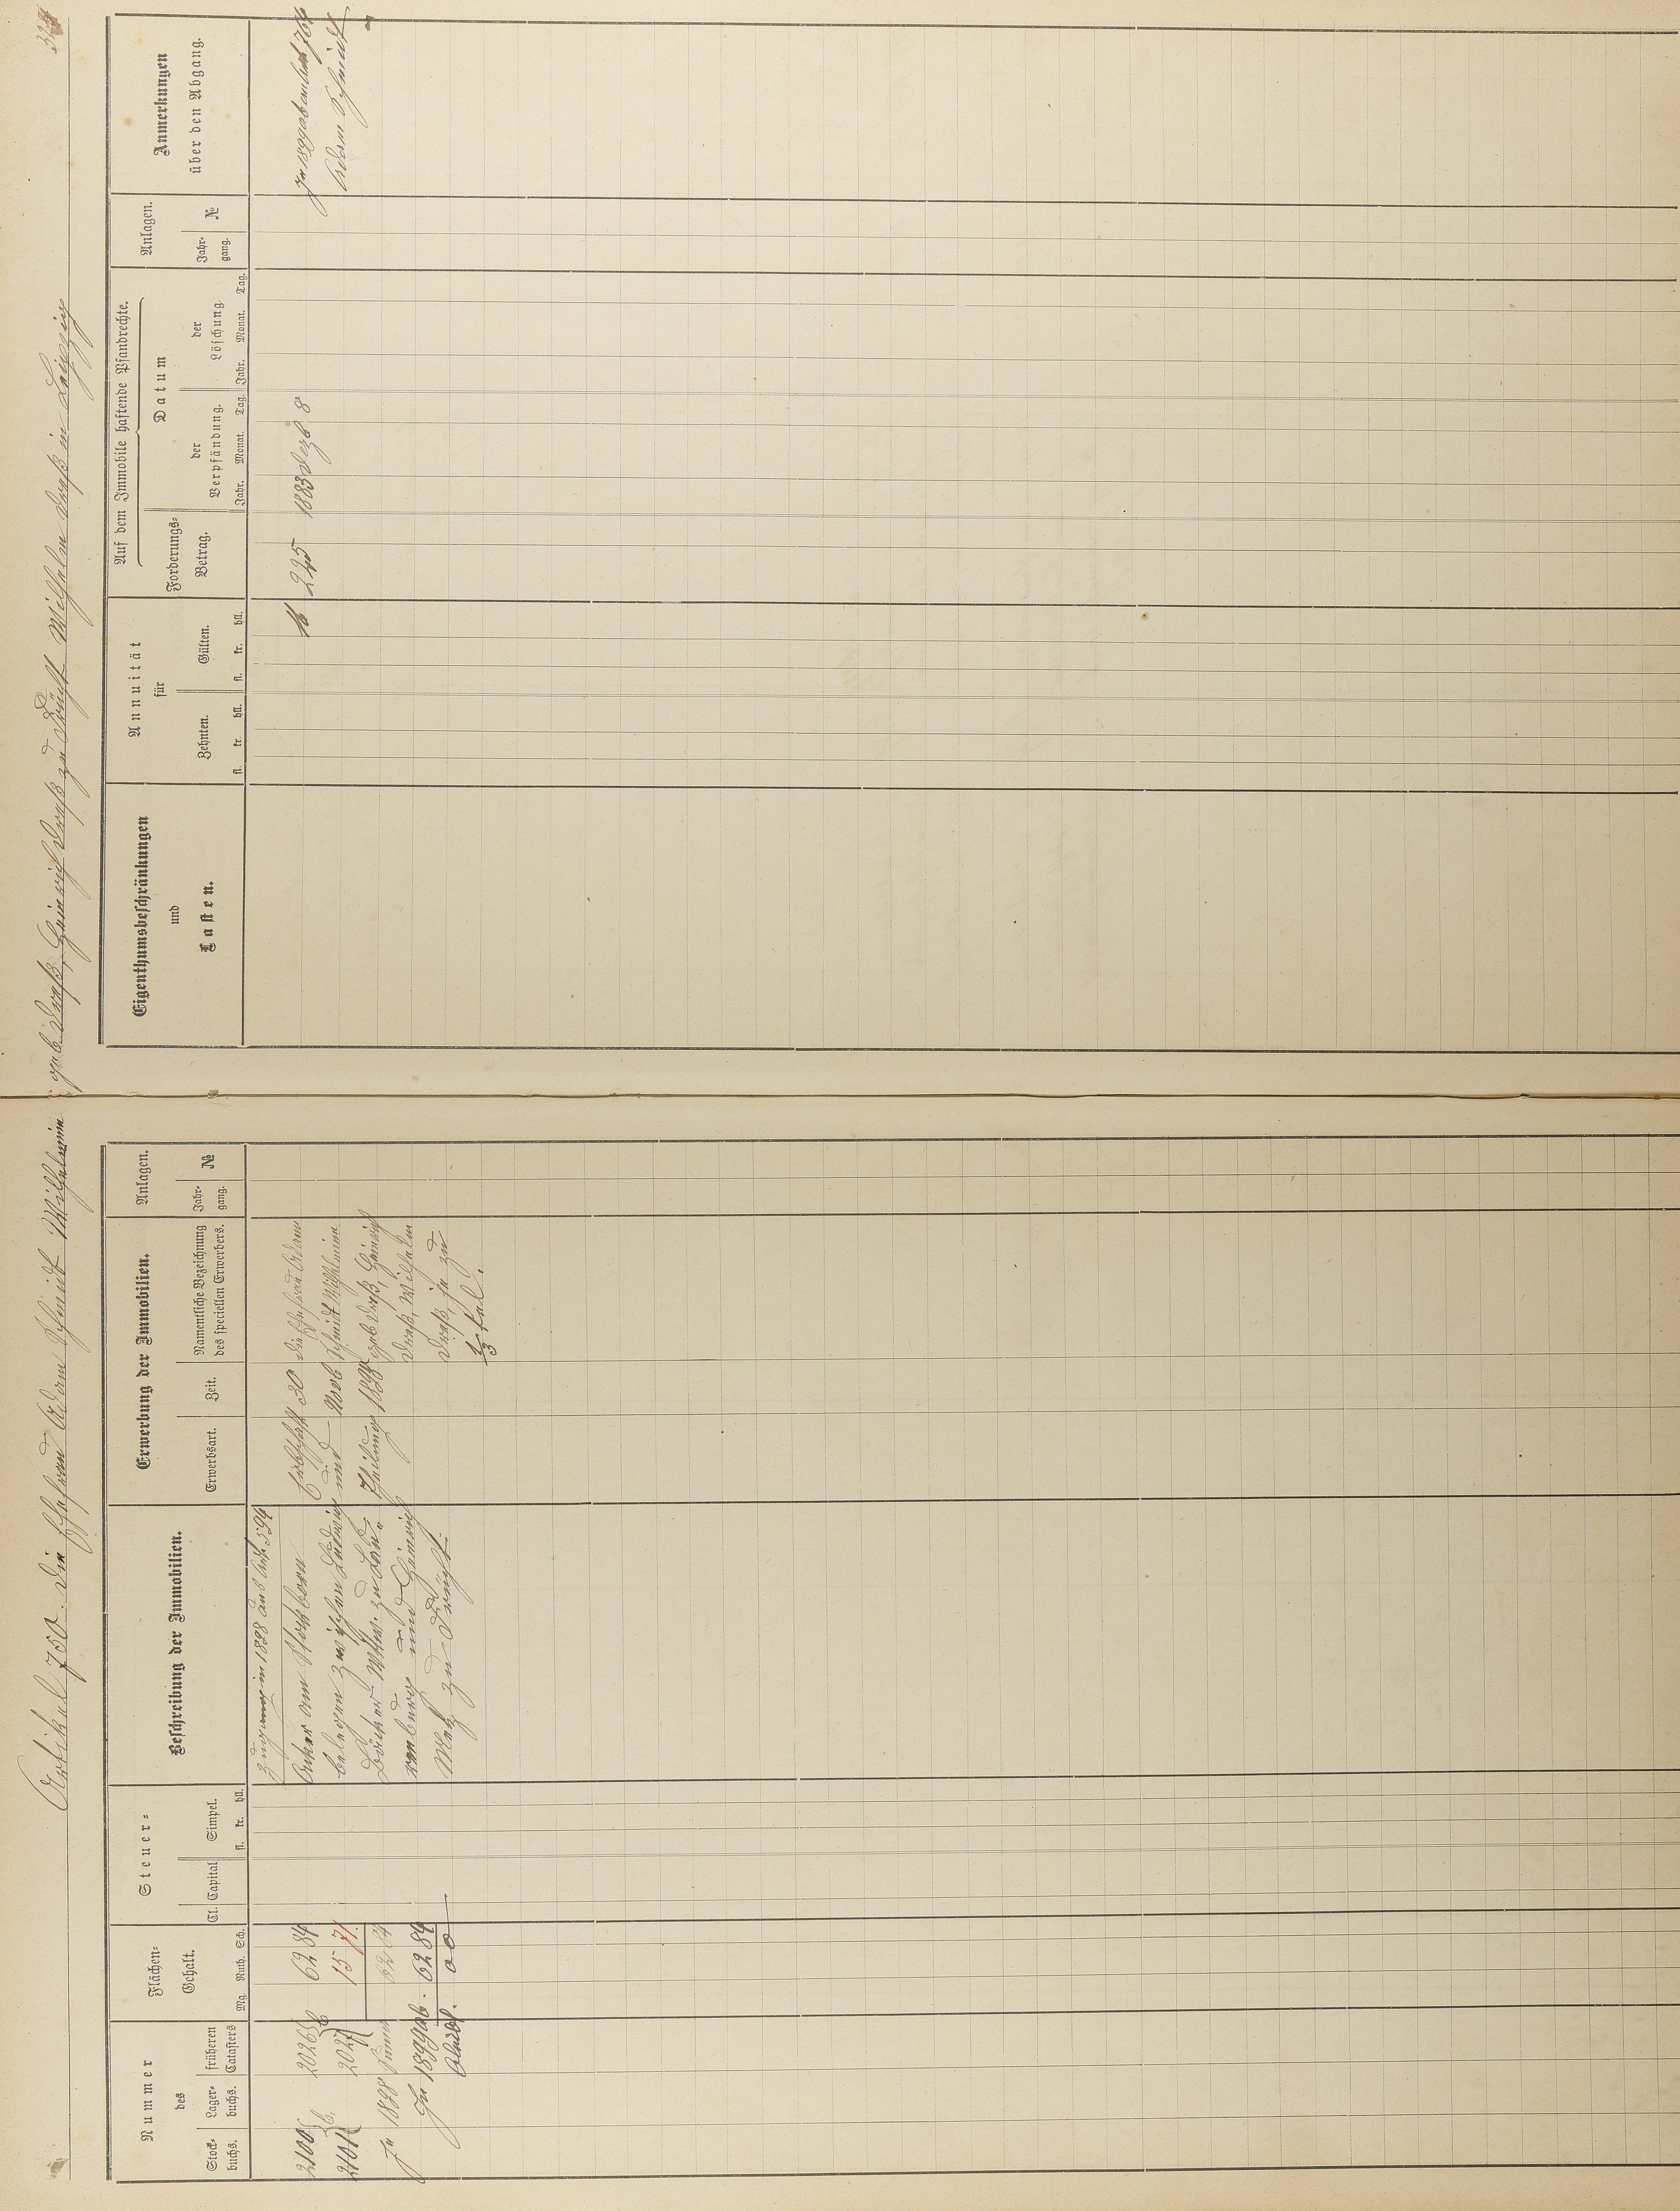 Artikel 750. Die Ehefrau Adam Schmidt Wilhelmine geb. Dreß, Heinrich Dreß zu Frücht Wilhelm Dreß in Leipzig
Nummer
des
Stock-
buchs.
Lager-
buchs.
früheren
Catasters
Flächen-
Gehalt.
Mg. Ruth. Sch.
Steuer-
Cl. Capital
Simpel.
fl. kr. hll.
Beschreibung der Immobilien.
Erwerbung der Immobilien.
Erwerbsart.
Zeit.
Namentliche Bezeichnung
des speciellen Erwerbers.
Anlagen.
Jahr-
gang.
№
Zugang in 1898 aus Art. 594
2100 2026 62 84 Acker am
Erbschaft 30 die Ehefrau Adam
2101 b. 2027 b 15 71.
belegen zwischen Ludwig
und Novb Schmidt Wilhelmine
Theilung 189 geb Dreß, Heinrich
In 1898 Summe 62 84
und Heinrich
Dreß, Wilhelm
In 1899 ab. 62 84
zu Frücht.
Dreß, je zu
0 0
1/3 tel.
Eigenthumsbeschränkungen
und
Lasten.
Annuität
für
Zehnten.
fl. kr. hll.
Gülten.
fl. kr. hll.
Auf dem Immobile haftende Pfandrechte.
Forderungs-
Betrag.
Datum
der
Verpfändung.
Jahr. Monat. Tag.
der
Löschung.
Jahr. Monat. Tag.
Anlagen.
Jahr-
gang.
№
Anmerkungen
über den Abgang.
225 1883 Dezb 8
In 1899 ab 764
Adam Schmidt